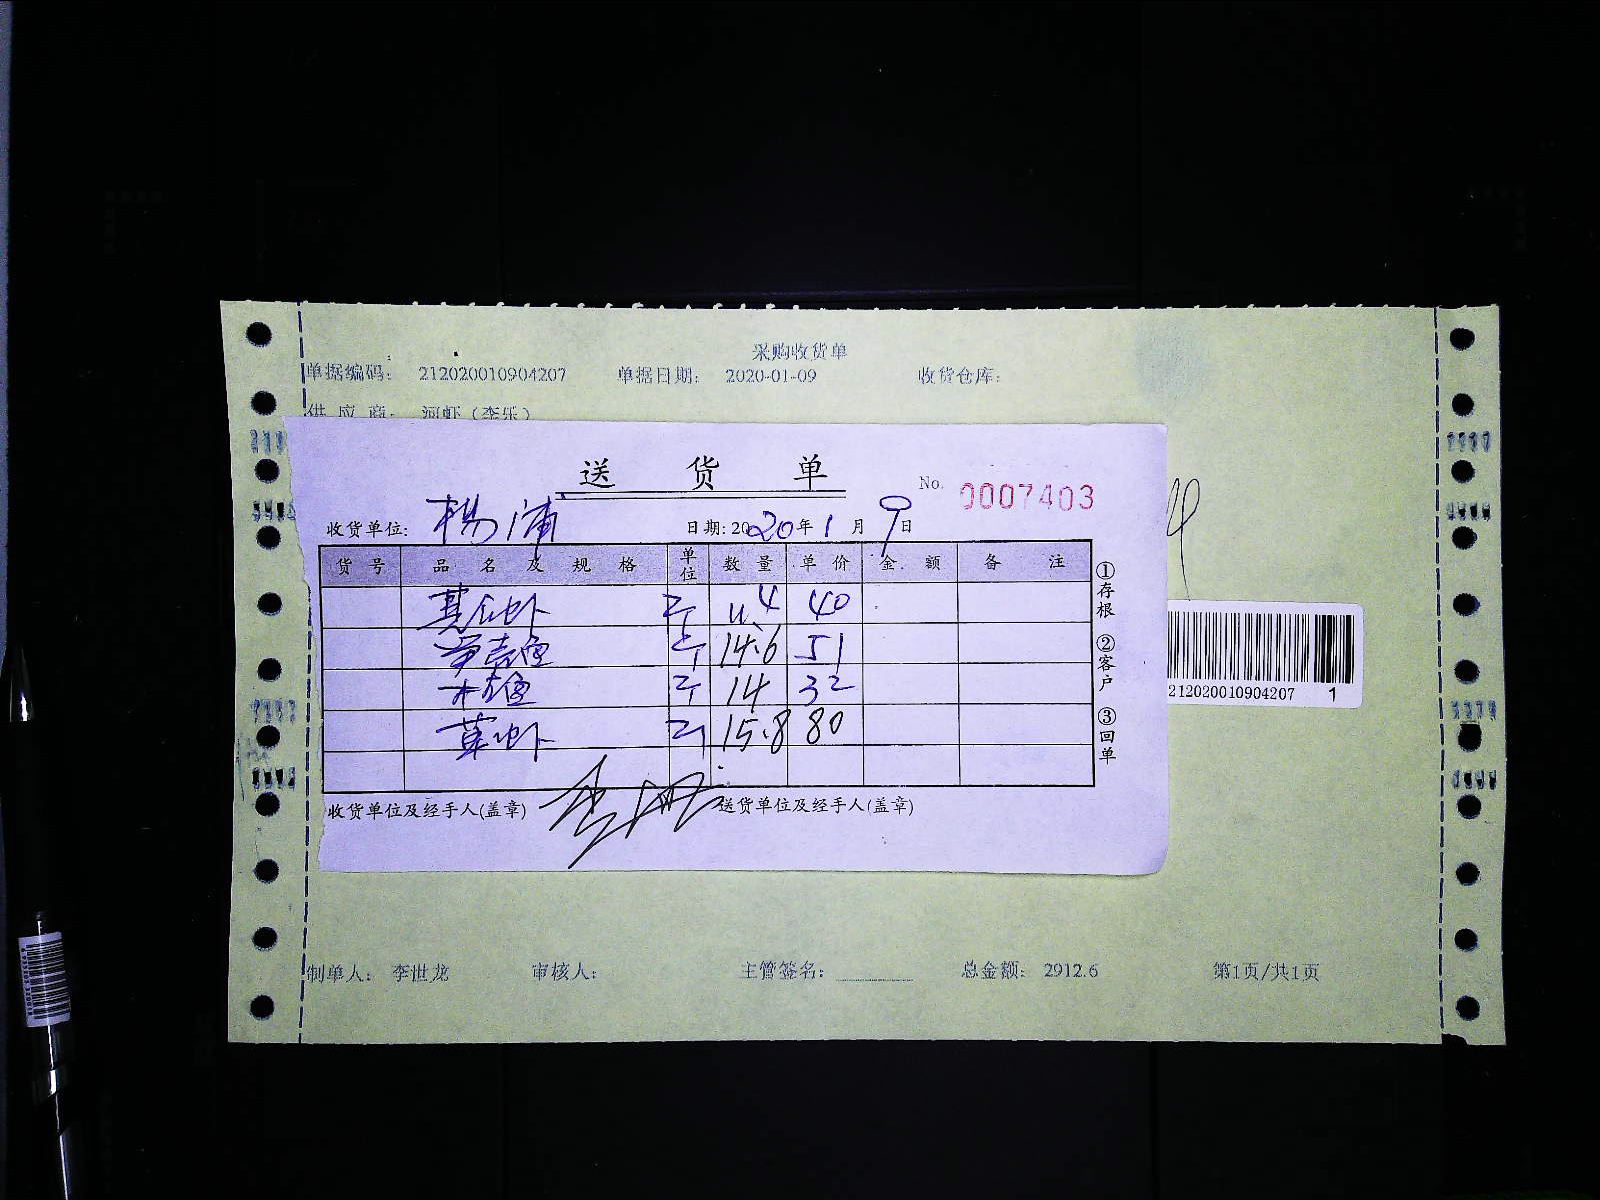 采购收货单
单据编码: 212020010904207 单据日期: 2020-01-09 收货仓库:
供应商: 河虾(李乐)
送货单
No. 0007403
收货单位: 杨浦 日期: 2020年1月9日
货号 品名及规格 单位 数量 单价 金额 备注
基位虾 斤 4 40
斤 14.6 51
斤 14 32
草虾 斤 15.8 80
①存根 ②客户 ③回单
收货单位及经手人(盖章) 送货单位及经手人(盖章)
212020010904207 1
制单人: 李世龙 审核人: 主管签名: 总金额: 2912.6 第1页/共1页